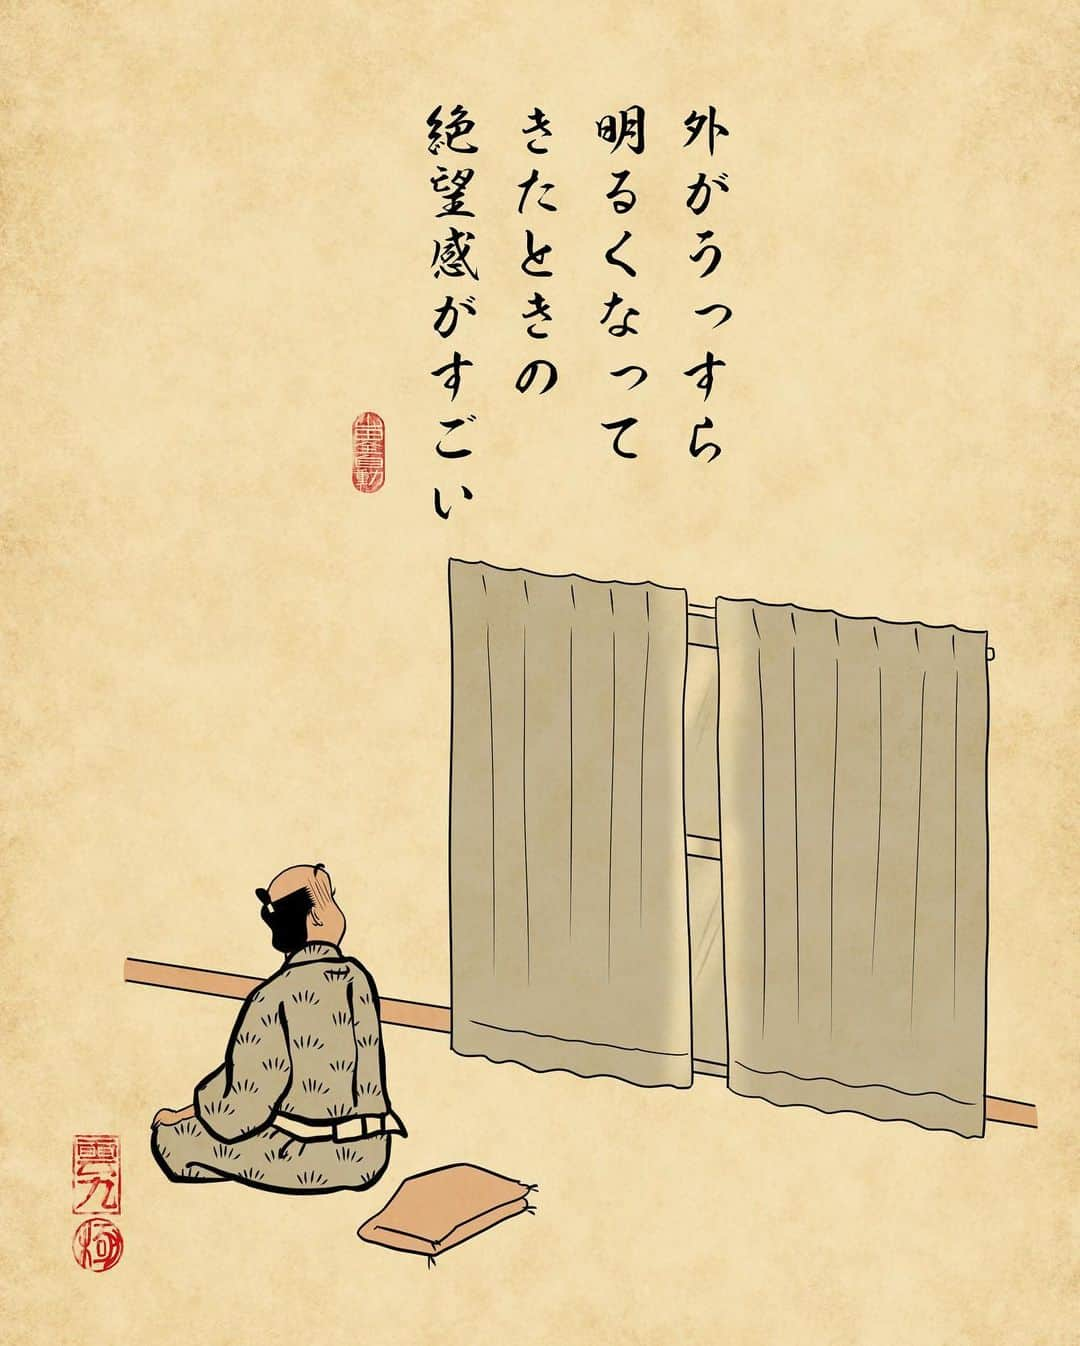 外がうっすら
明るくなって
きたときの
絶望感がすごい